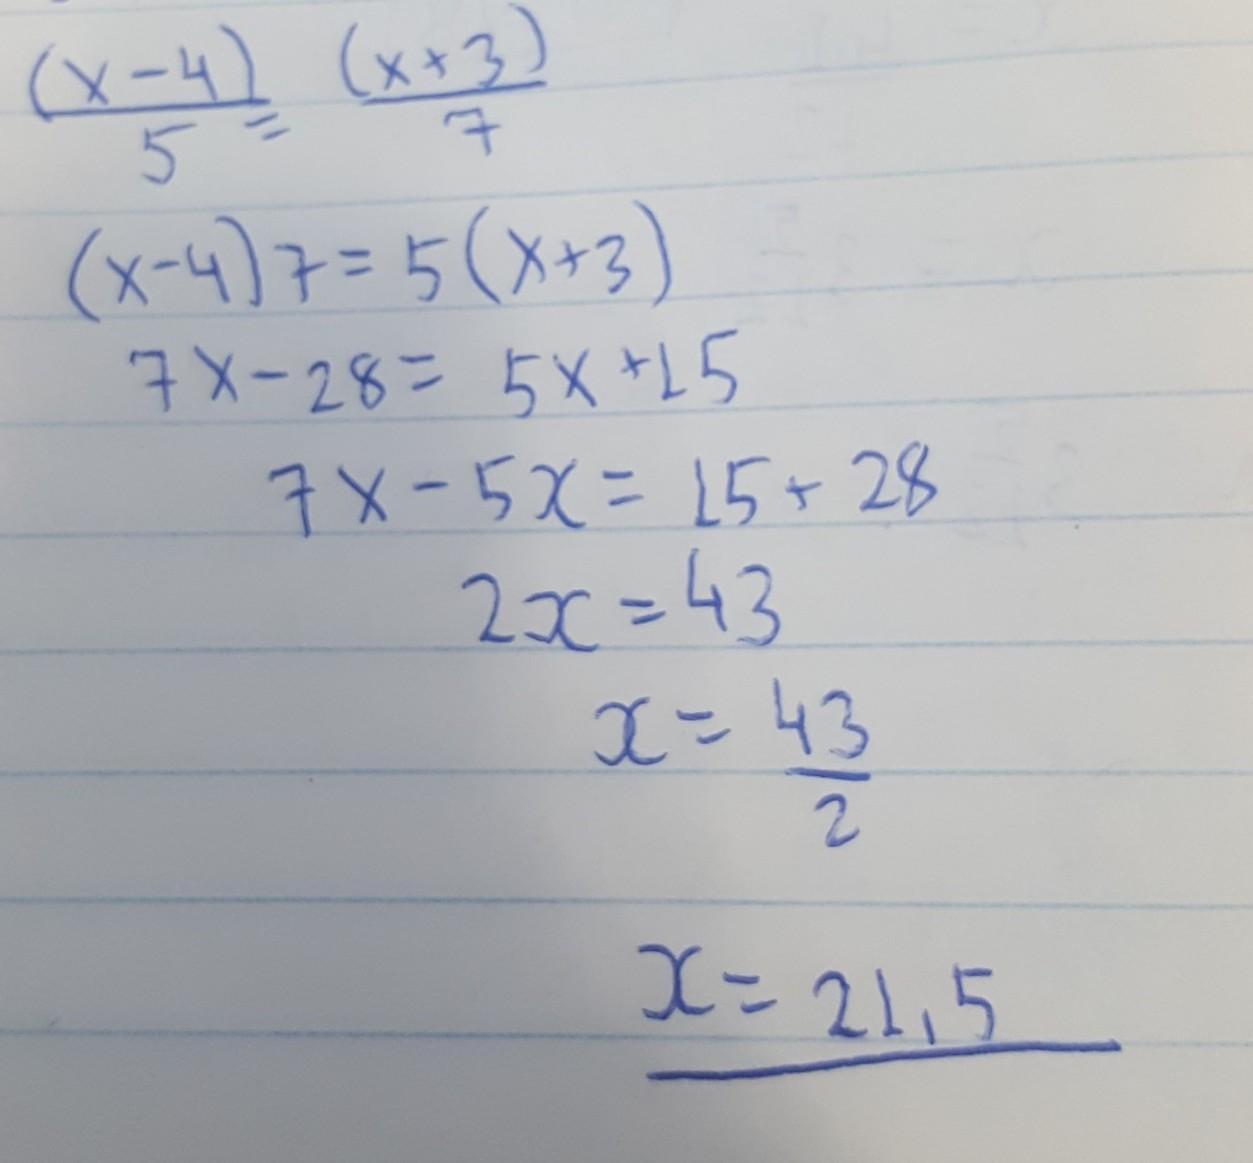 (x-4)/5 = (x+3)/7
(x-4)7=5(x+3)
7x-28= 5x+15
7x-5x= 15+28
2x=43
x= 43/2
x= 21,5